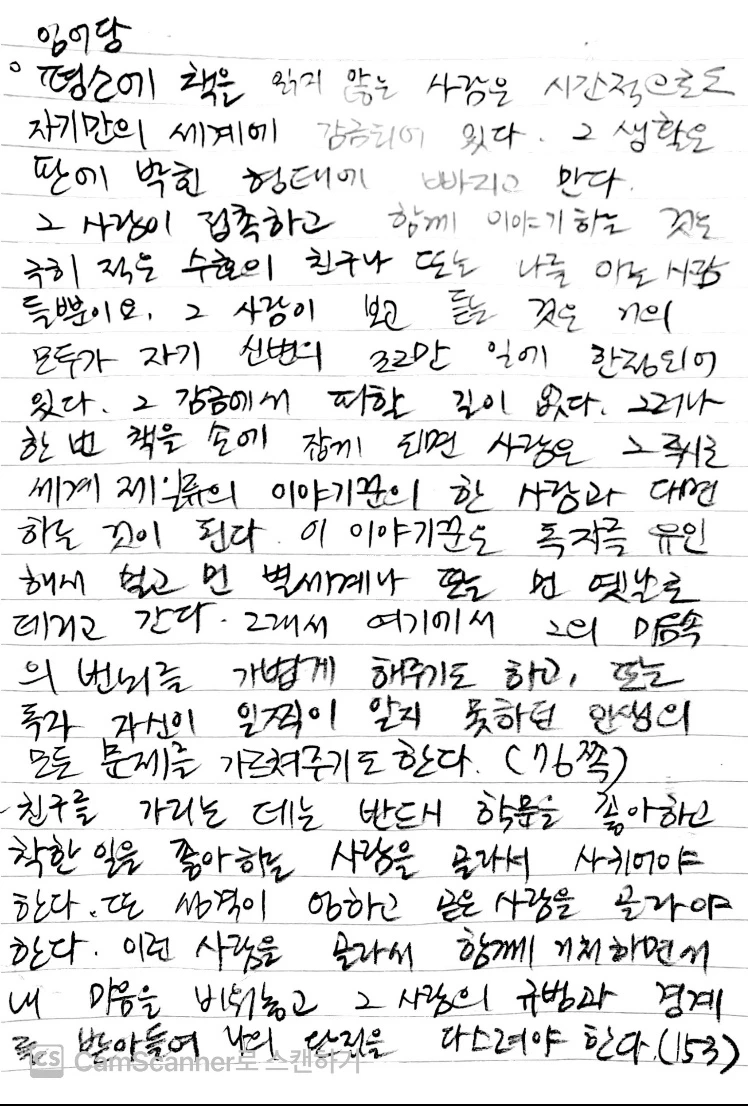 임어당
° 평소에 책을 읽지 않는 사람은 시간적으로도
자기만의 세계에 감금되어 있다. 그 생활은
판에 박힌 형태에 빠지고 만다.
그 사람이 접촉하고 함께 이야기하는 것은
극히 적은 수효의 친구나 또는 나를 아는 사람
들뿐이요, 그 사람이 보고 듣는 것은 거의
모두가 자기 신변의 조그만 일에 한정되어
있다. 그 감금에서 피할 길이 없다. 그러나
한 번 책을 손에 잡게 되면 사람은 그 즉시로
세계 제일류의 이야기꾼의 한 사람과 대면
하는 것이 된다. 이 이야기꾼은 독자를 유인
해서 멀고 먼 별세계나 또는 먼 옛날로
데리고 간다. 그래서 여기에서 그의 마음속
의 번뇌를 가볍게 해주기도 하고, 또는
독자 자신이 일찍이 알지 못하던 인생의
모든 문제를 가르쳐주기도 한다. (76쪽)
친구를 가리는 데는 반드시 학문을 좋아하고
착한 일을 좋아하는 사람을 골라서 사귀어야
한다. 또 성격이 엄하고 곧은 사람을 골라야
한다. 이런 사람을 골라서 함께 거처하면서
내 마음을 비워놓고 그 사람의 규범과 경계
를 받아들여 나의 단점을 다스려야 한다.(153)
CS CamScanner로 스캔하기